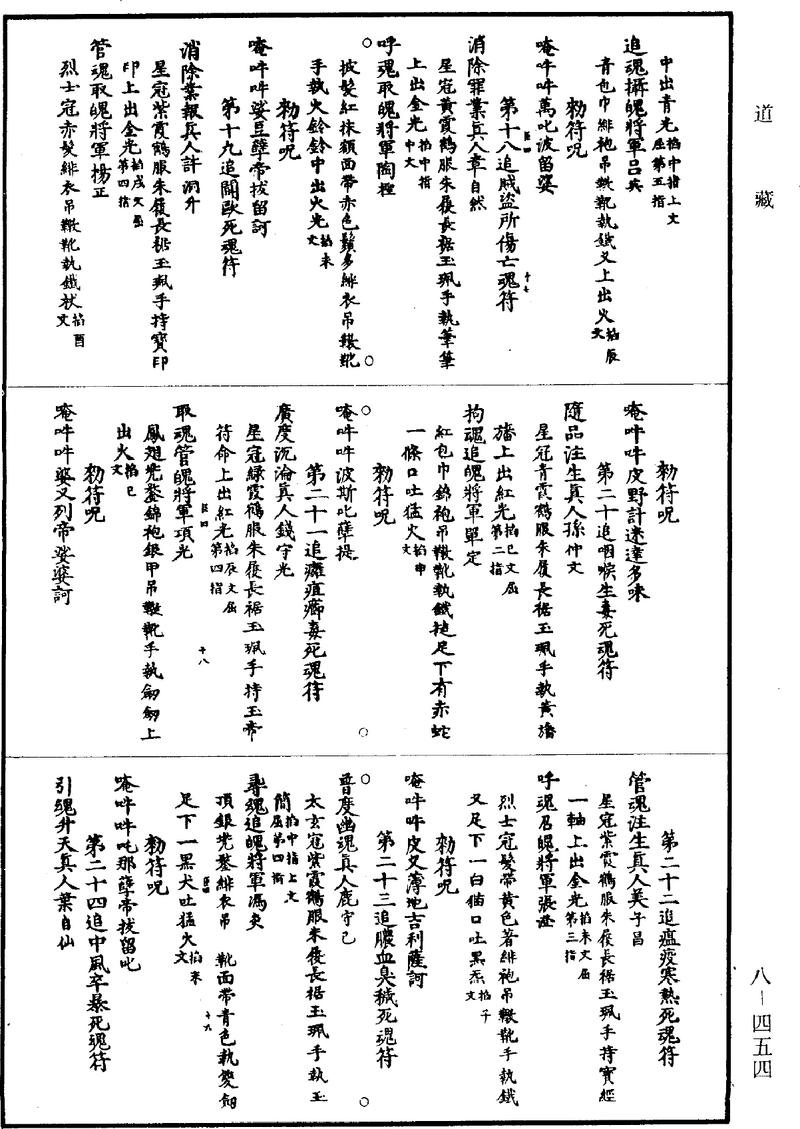 道藏
中出青光掐中指上文屈第五指
追魂攝魄將軍呂英
青包巾緋袍吊䩺靴執鐵叉上出火掐辰文
勑符呪
唵吽吽萬叱波留娑
第十八追賊盜所傷亡魂符
消除罪業真人韋自然
星冠黃霞鶴服朱履長裾玉珮手執筆筆
上出金光掐中指中文
呼魂取魄將軍陶極
披髮紅抹額面帶赤色鬚多緋衣吊䩺靴
手執火鈴鈴中出火光掐未文
勑符呪
唵吽吽娑豆孽帝拔留訶
第十九追鬭毆死魂符
消除業報真人許洞升
星冠紫霞鶴服朱履長裾玉珮手持寶印
印上出金光掐戌文屈第四指
管魂取魄將軍楊正
烈士冠赤髮緋衣吊䩺靴執鐵杖掐酉文
勑符呪
唵吽吽皮野計迷達多味
第二十追咽喉生毒死魂符
隨品注生真人孫仲文
星冠青霞鶴服朱履長裾玉珮手執黃旛
旛上出紅光掐巳文屈第二指
拘魂追魄將軍單定
紅包巾錦袍吊䩺靴執鐵鎚足下有赤蛇
一條口吐猛火掐申文
勑符呪
唵吽吽波斯叱孽提
第二十一追癰疽癤毒死魂符
廣度沉淪真人錢守光
星冠綠霞鶴服朱履長裾玉珮手持玉帝
符命上出紅光掐辰文屈第四指
取魂管魄將軍項光
鳳翅兜鍪錦袍銀甲吊䩺靴手執劒劒上
出火掐巳文
勑符呪
唵吽吽娑又列帝娑婆訶
第二十二追瘟疫寒熱死魂符
管魂注生真人姜子昌
星冠紫霞鶴服朱履長裾玉珮手持寶經
一軸上出金光掐未文屈第三指
呼魂召魄將軍張澄
烈士冠髮帶黃色著緋袍吊䩺靴手執鐵
叉足下一白猫口吐黑炁掐子文
勑符呪
唵吽吽皮又薄地吉利薩訶
第二十三追膿血臭穢死魂符
普度幽魂真人鹿守己
太玄冠紫霞鶴服朱履長裾玉珮手執玉
簡掐中指上文屈第四指
尋魂追魄將軍馮夷
頂銀兜鍪緋衣吊 靴面帶青色執雙劒
足下一黑犬吐猛火掐未文
勑符呪
唵吽吽吒那孽帝拔留叱
第二十四追中風卒暴死魂符
引魂升天真人葉自仙
八－四五四